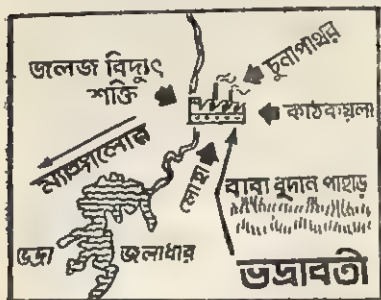 জলজ বিদ্যুৎ
শক্তি
চুনাপাথর
কাঠকয়লা
ম্যাঙ্গালোর
লোহা
বাবা বুদান পাহাড়
ভদ্রা জলাধার
ভদ্রাবতী